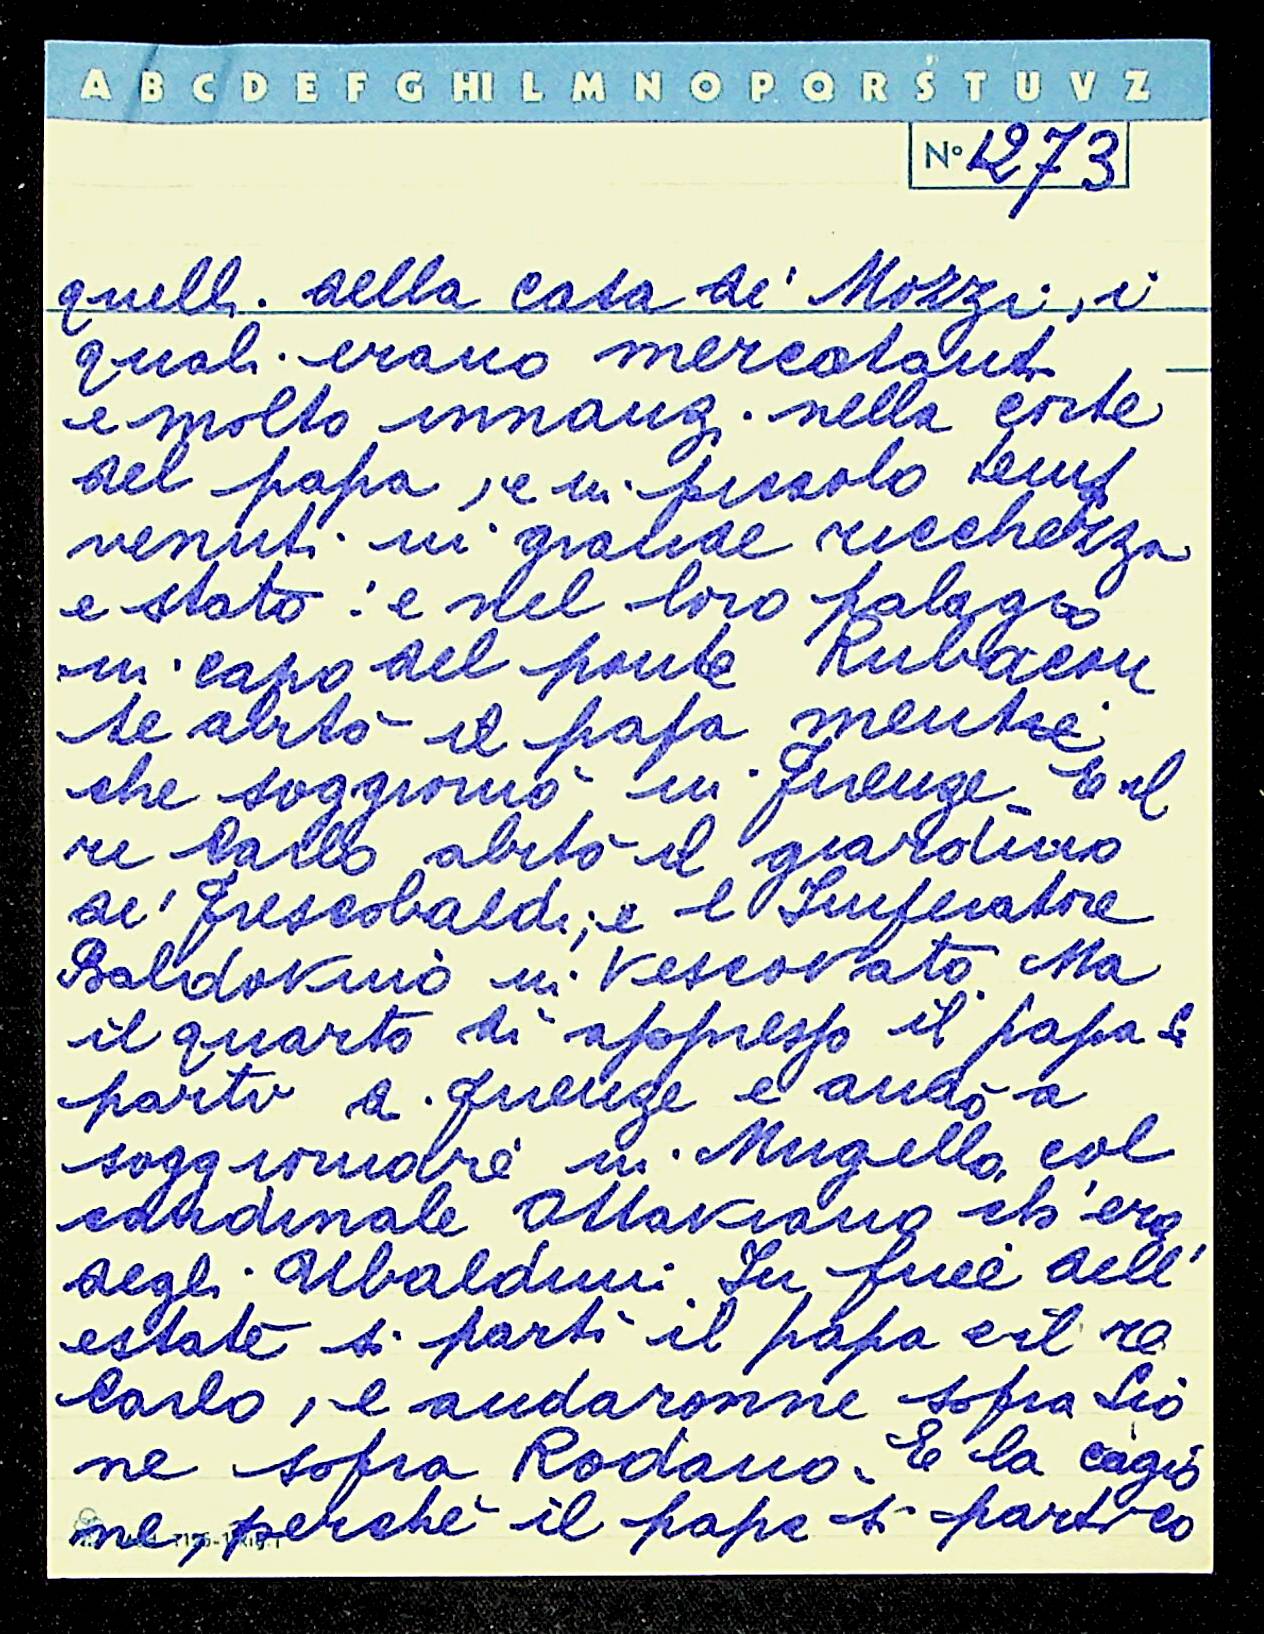 A B C D E F G HI L M N O P Q R S T U V Z
N° 1273
quelli della casa de' Mozzi, i
quali erano mercatanti
e molto innanzi nella corte
del papa, e in piccolo temp
venuti in grande ricchezza
e stato: e nel loro palagio
in capo del ponte Rubacon
te abitò il papa mentre
che soggiornò in Firenze. E il
re Carlo abitò il giardino
de' Frescobaldi, e l'Imperatore
Baldovino in Vescovato. Ma
il quarto dì appresso il papa si
partì di Firenze e andò a
soggiornare in Mugello, col
cardinale Ottaviano ch'era
degli Ubaldini. In fine dell'
estate si partì il papa e il re
Carlo, e andaronne sopra Lio
ne sopra Rodano. E la cagio
ne, perchè il papa si partì co